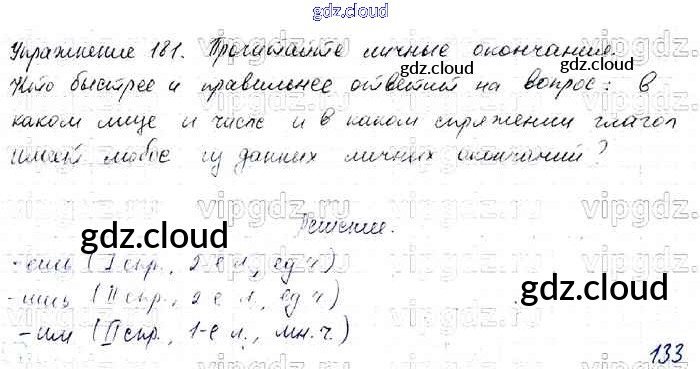 gdz.cloud
Упражнение 181. Прочитайте личные окончания.
gdz.cloud gdz.cloud
Кто быстрее и правильнее ответит на вопрос: в
каком лице и числе и в каком спряжении глагол
имеет любое из данных личных окончаний?
vipgdz.ru vipgdz.ru vipgdz.ru
Решение.
gdz.cloud
-ешь (I спр., 2-е л., ед ч)
gdz.cloud
-ишь (II спр., 2-е л., ед ч)
-им (II спр., 1-е л., мн. ч.)
133